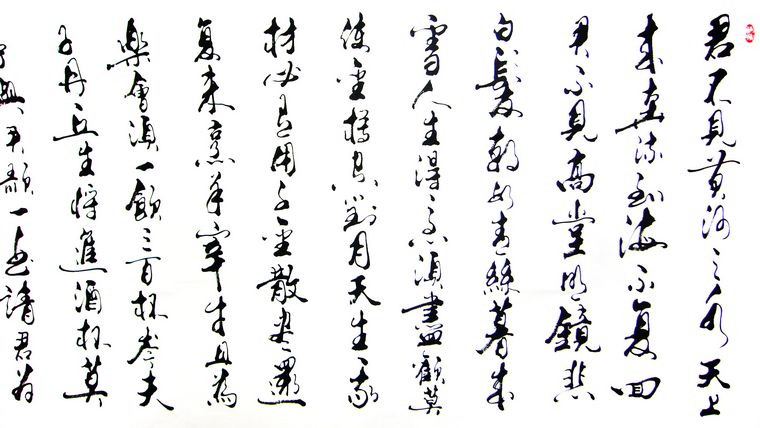 君不見黄河之水天上
来奔流到海不复回
君不見高堂明鏡悲
白髮朝如青絲暮成
雪人生得意須盡歡莫
使金樽空對月天生我
材必有用千金散盡還
复来烹羊宰牛且為
樂會須一飲三百杯岑夫
子丹丘生將進酒杯莫
與君歌一曲請君为